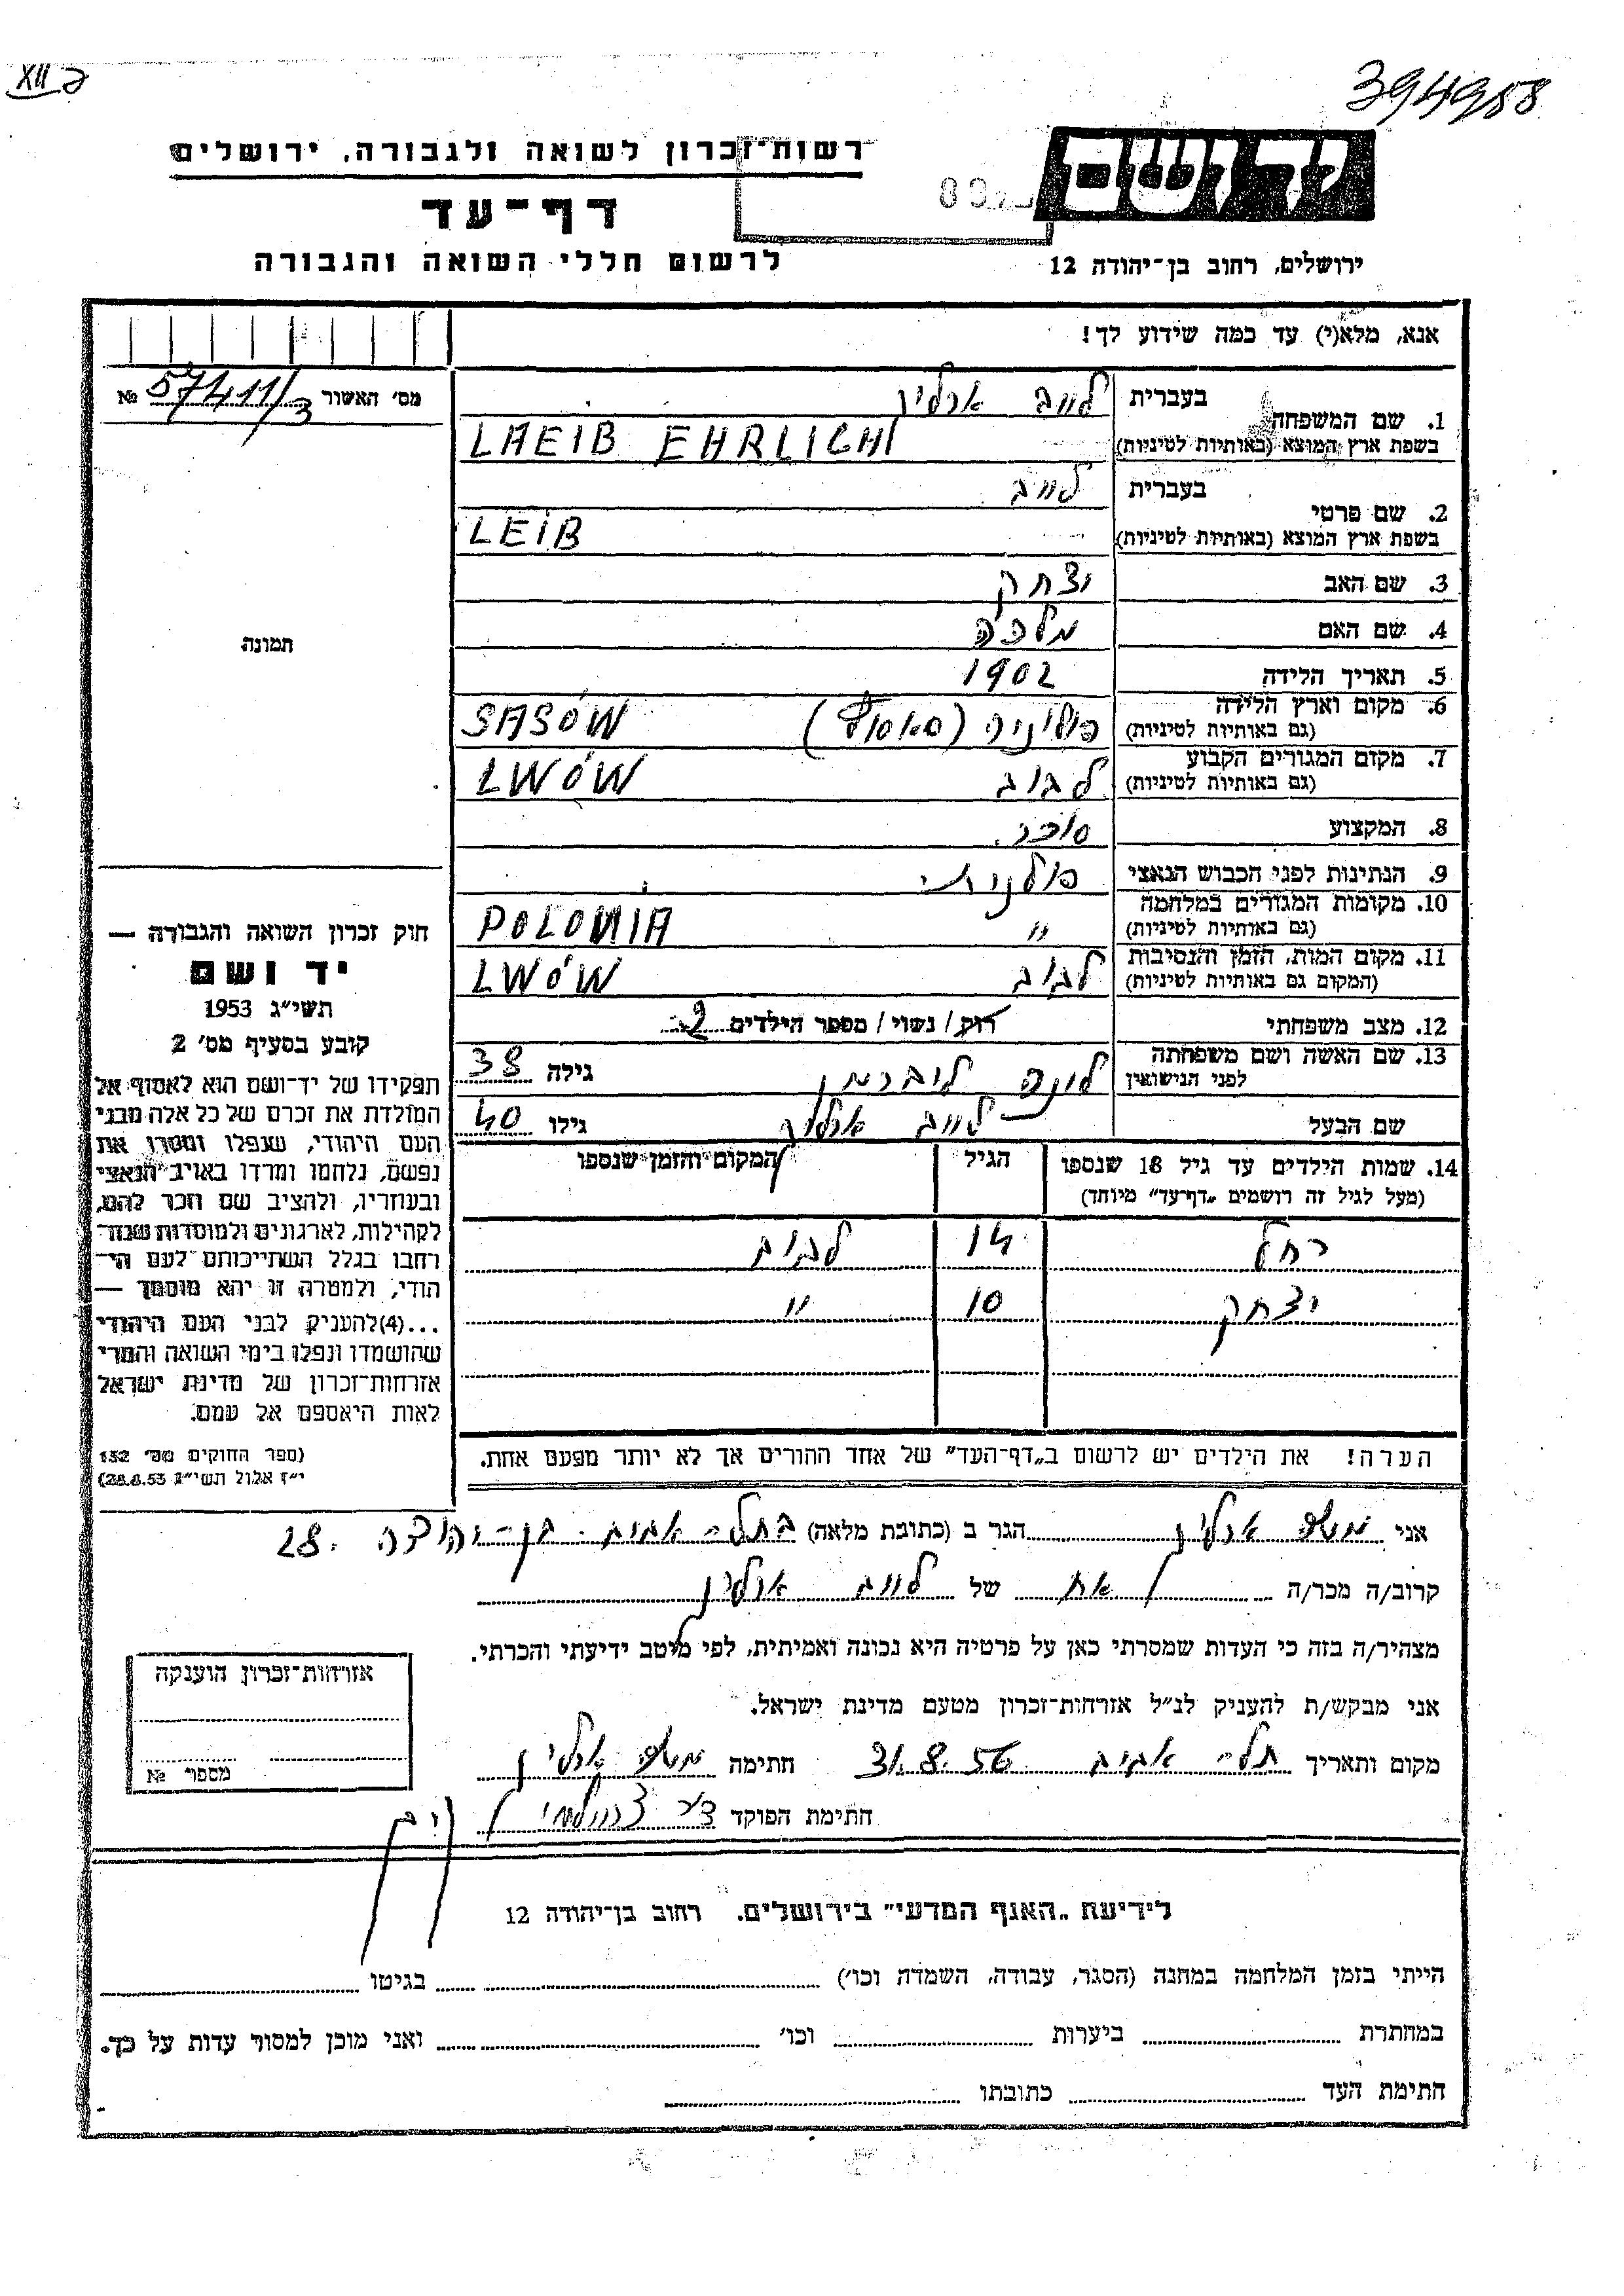 XII ב
394988
רשות־זכרון לשואה ולגבורה, ירושלים
יד ושם
דף־עד
לרשום חללי השואה והגבורה
ירושלים, רחוב בן־יהודה 12
אנא, מלא(י) עד כמה שידוע לך!
מס׳ האשור 57411/3 №
1. שם המשפחה בעברית לייב ארליך
בשפת ארץ המוצא (באותיות לטיניות) LAEIB EHRLICH
2. שם פרטי בעברית לייב
בשפת ארץ המוצא (באותיות לטיניות) LEIB
3. שם האב יצחק
4. שם האם מלכה
5. תאריך הלידה 1902
6. מקום וארץ הלידה (גם באותיות לטיניות) פולניה SASÓW
7. מקום המגורים הקבוע (גם באותיות לטיניות) לבוב LWÓW
8. המקצוע סוחר.
9. הנתינות לפני הכבוש הנאצי פולנית
10. מקומות המגורים במלחמה (גם באותיות לטיניות) " POLONIA
11. מקום המות, הזמן והנסיבות (המקום גם באותיות לטיניות) לבוב LWÓW
12. מצב משפחתי רוק / נשוי / מספר הילדים 2
13. שם האשה ושם משפחתה לפני הנישואין ליברמן גילה 38
שם הבעל לייב ארליך גילו 40
14. שמות הילדים עד גיל 18 שנספו (מעל לגיל זה רושמים „דף־עד” מיוחד) הגיל המקום והזמן שנספו
רחל 14 לבוב
יצחק 10 "
הערה! את הילדים יש לרשום ב„דף־העד” של אחד ההורים אך לא יותר מפעם אחת.
תמונה
חוק זכרון השואה והגבורה —
יד ושם
תשי״ג 1953
קובע בסעיף מס׳ 2
תפקידו של יד־ושם הוא לאסוף אל
המולדת את זכרם של כל אלה מבני
העם היהודי, שנפלו ומסרו את
נפשם, נלחמו ומרדו באויב הנאצי
ובעוזריו, ולהציב שם וזכר להם,
לקהילות, לארגונים ולמוסדות שנח־
רבו בגלל השתייכותם לעם הי־
הודי, ולמטרה זו יהא מוסמך —
...(4)להעניק לבני העם היהודי
שהושמדו ונפלו בימי השואה והמרי
אזרחות־זכרון של מדינת ישראל
לאות היאספם אל עמם.
(ספר החוקים מס׳ 132
י״ז אלול תשי״ג 28.8.53)
אני משה ארליך הגר ב (כתובת מלאה) בתל־אביב בן־יהודה 28.
קרוב/ה מכר/ה אח של לייב ארליך
מצהיר/ה בזה כי העדות שמסרתי כאן על פרטיה היא נכונה ואמיתית, לפי מיטב ידיעתי והכרתי.
אני מבקש/ת להעניק לנ״ל אזרחות־זכרון מטעם מדינת ישראל.
מקום ותאריך תל־אביב 31.8.56 חתימה משה ארליך
חתימת הפוקד
אזרחות־זכרון הוענקה
מספר №
לידיעת „האגף המדעי” בירושלים. רחוב בן־יהודה 12
הייתי בזמן המלחמה במחנה (הסגר, עבודה, השמדה וכו׳) בגיטו
במחתרת ביערות וכו׳ ואני מוכן למסור עדות על כך.
חתימת העד כתובתו